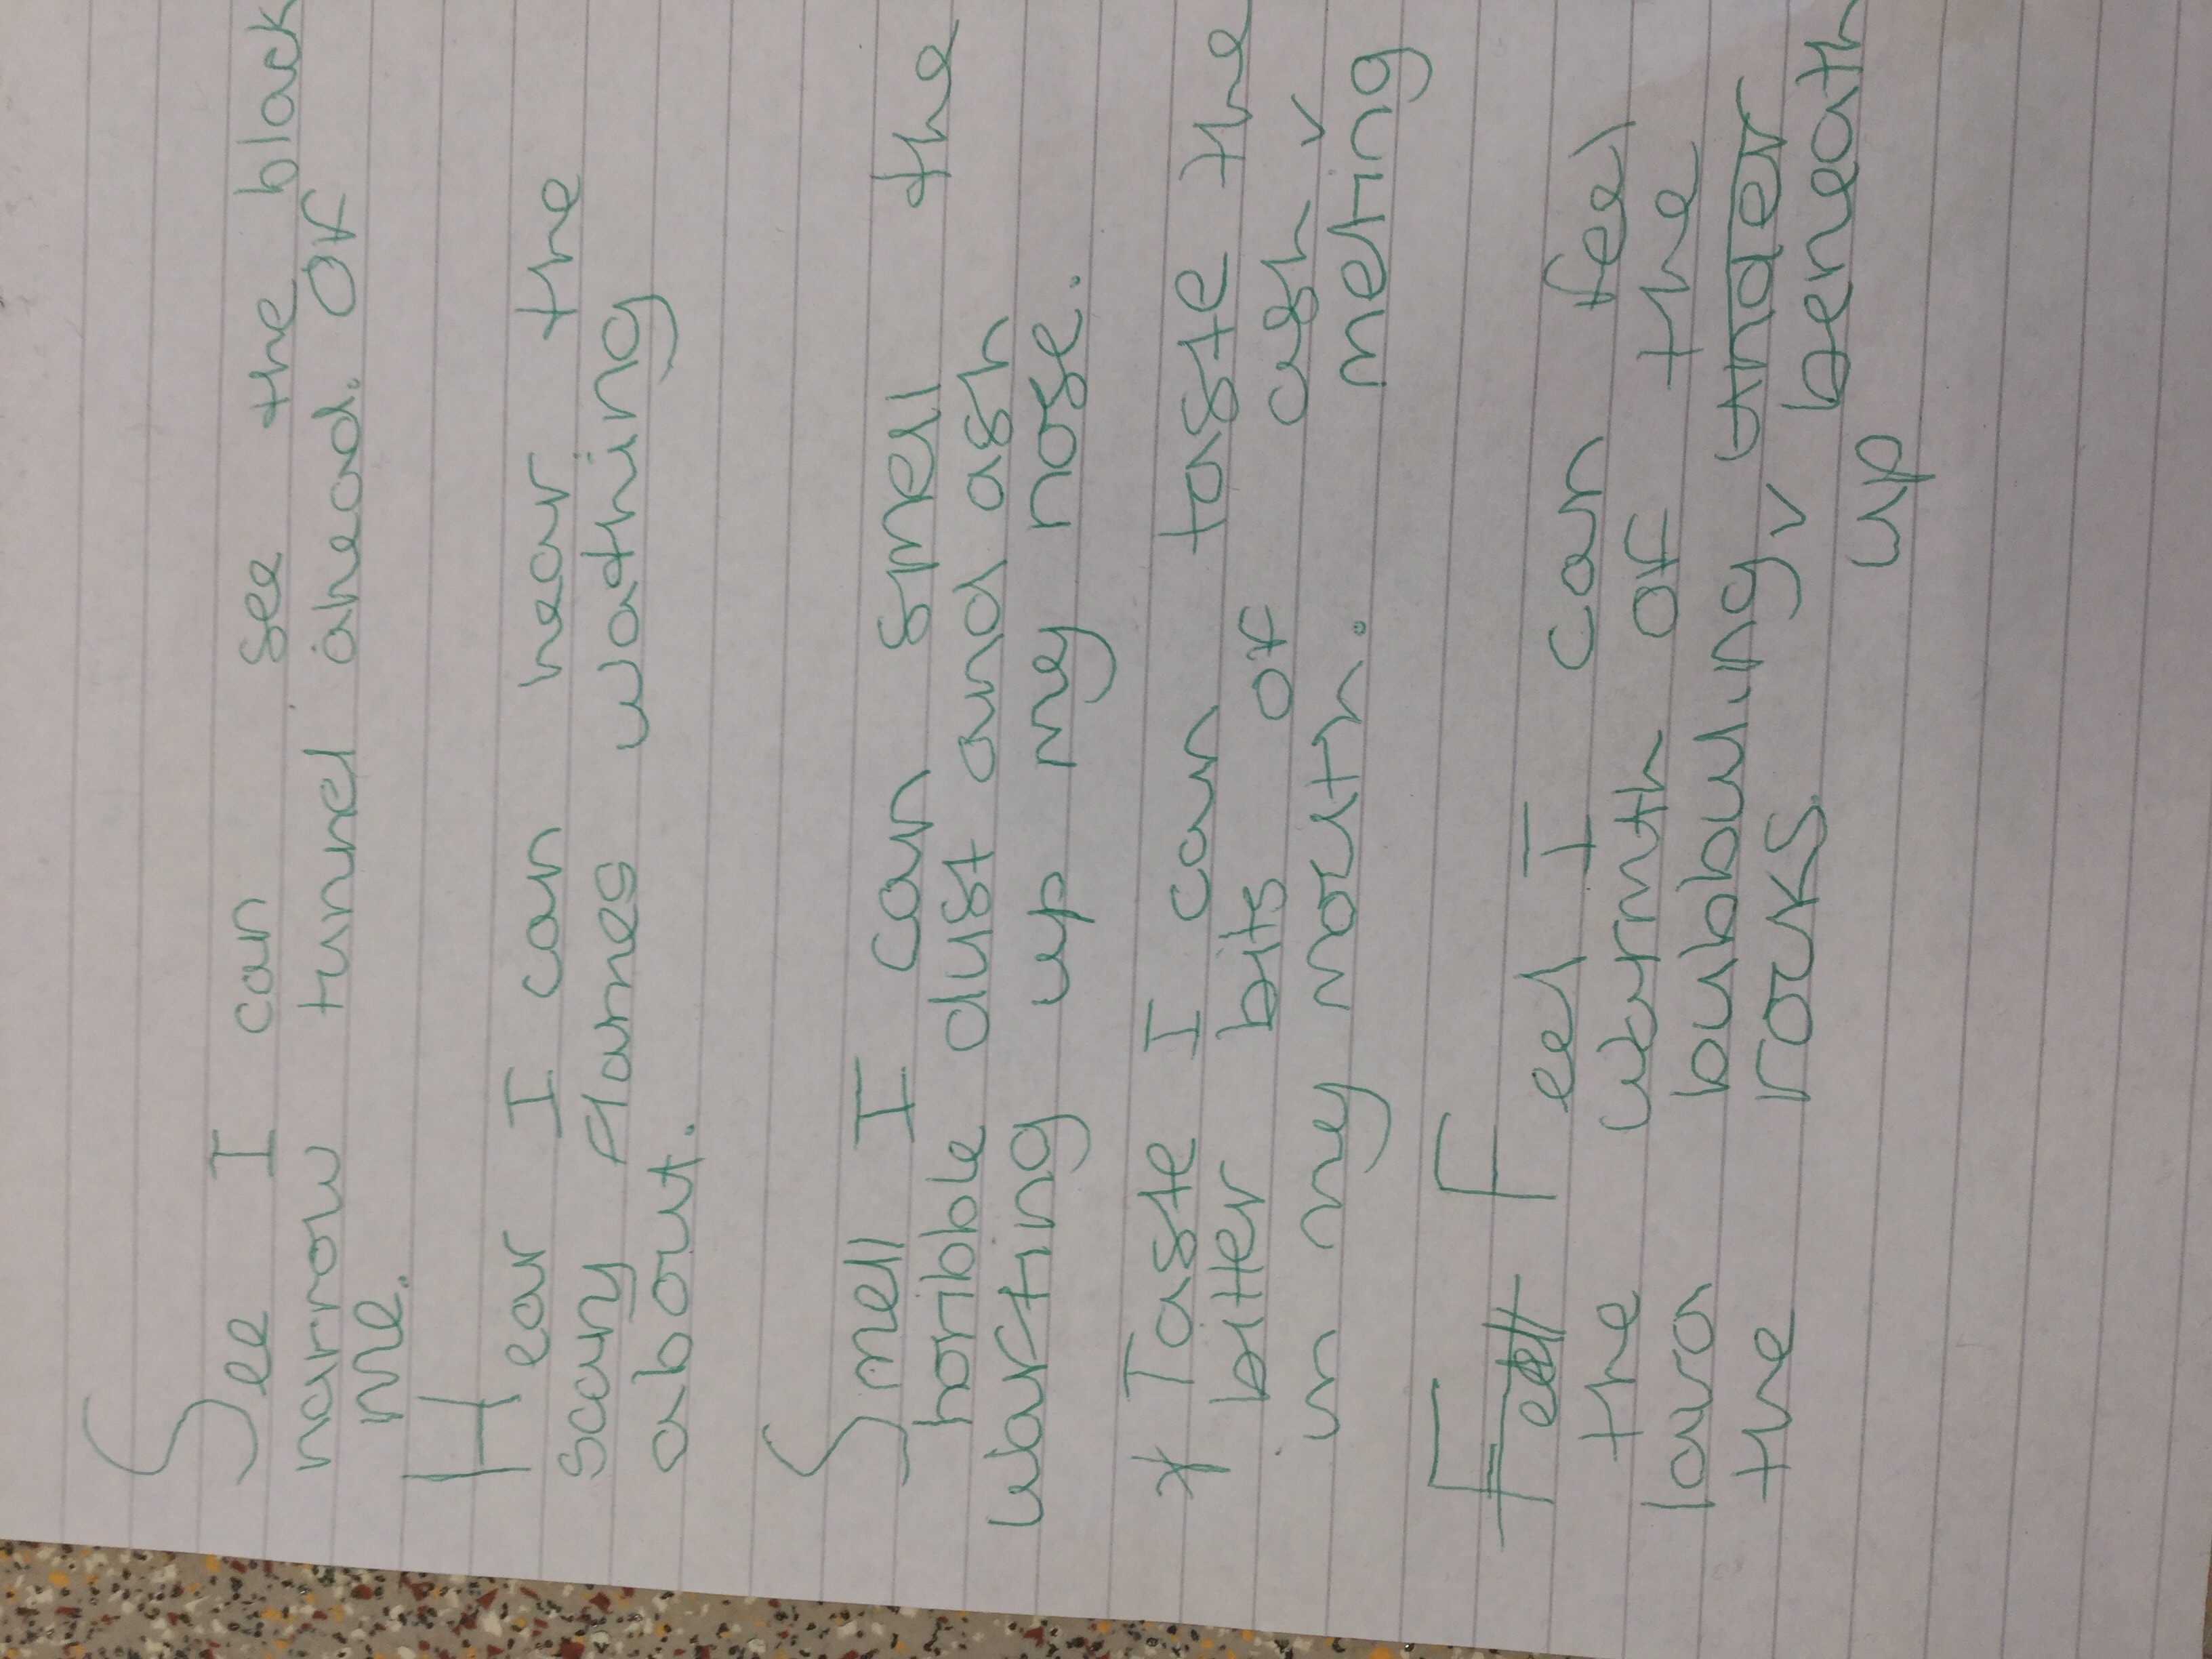 See I can see the black
narrow tunnel ahead. Of
me.
Hear I can hear the
scary flames wathing
about.
Smell I can smell the
horible dust and ash
warfting up my nose.
* Taste I can taste the
bitter bits of ash v
in my mouth. melting
Feel Feel I can feel
the warmth of the
lava bubbuling v under
the rocks. beneath
up